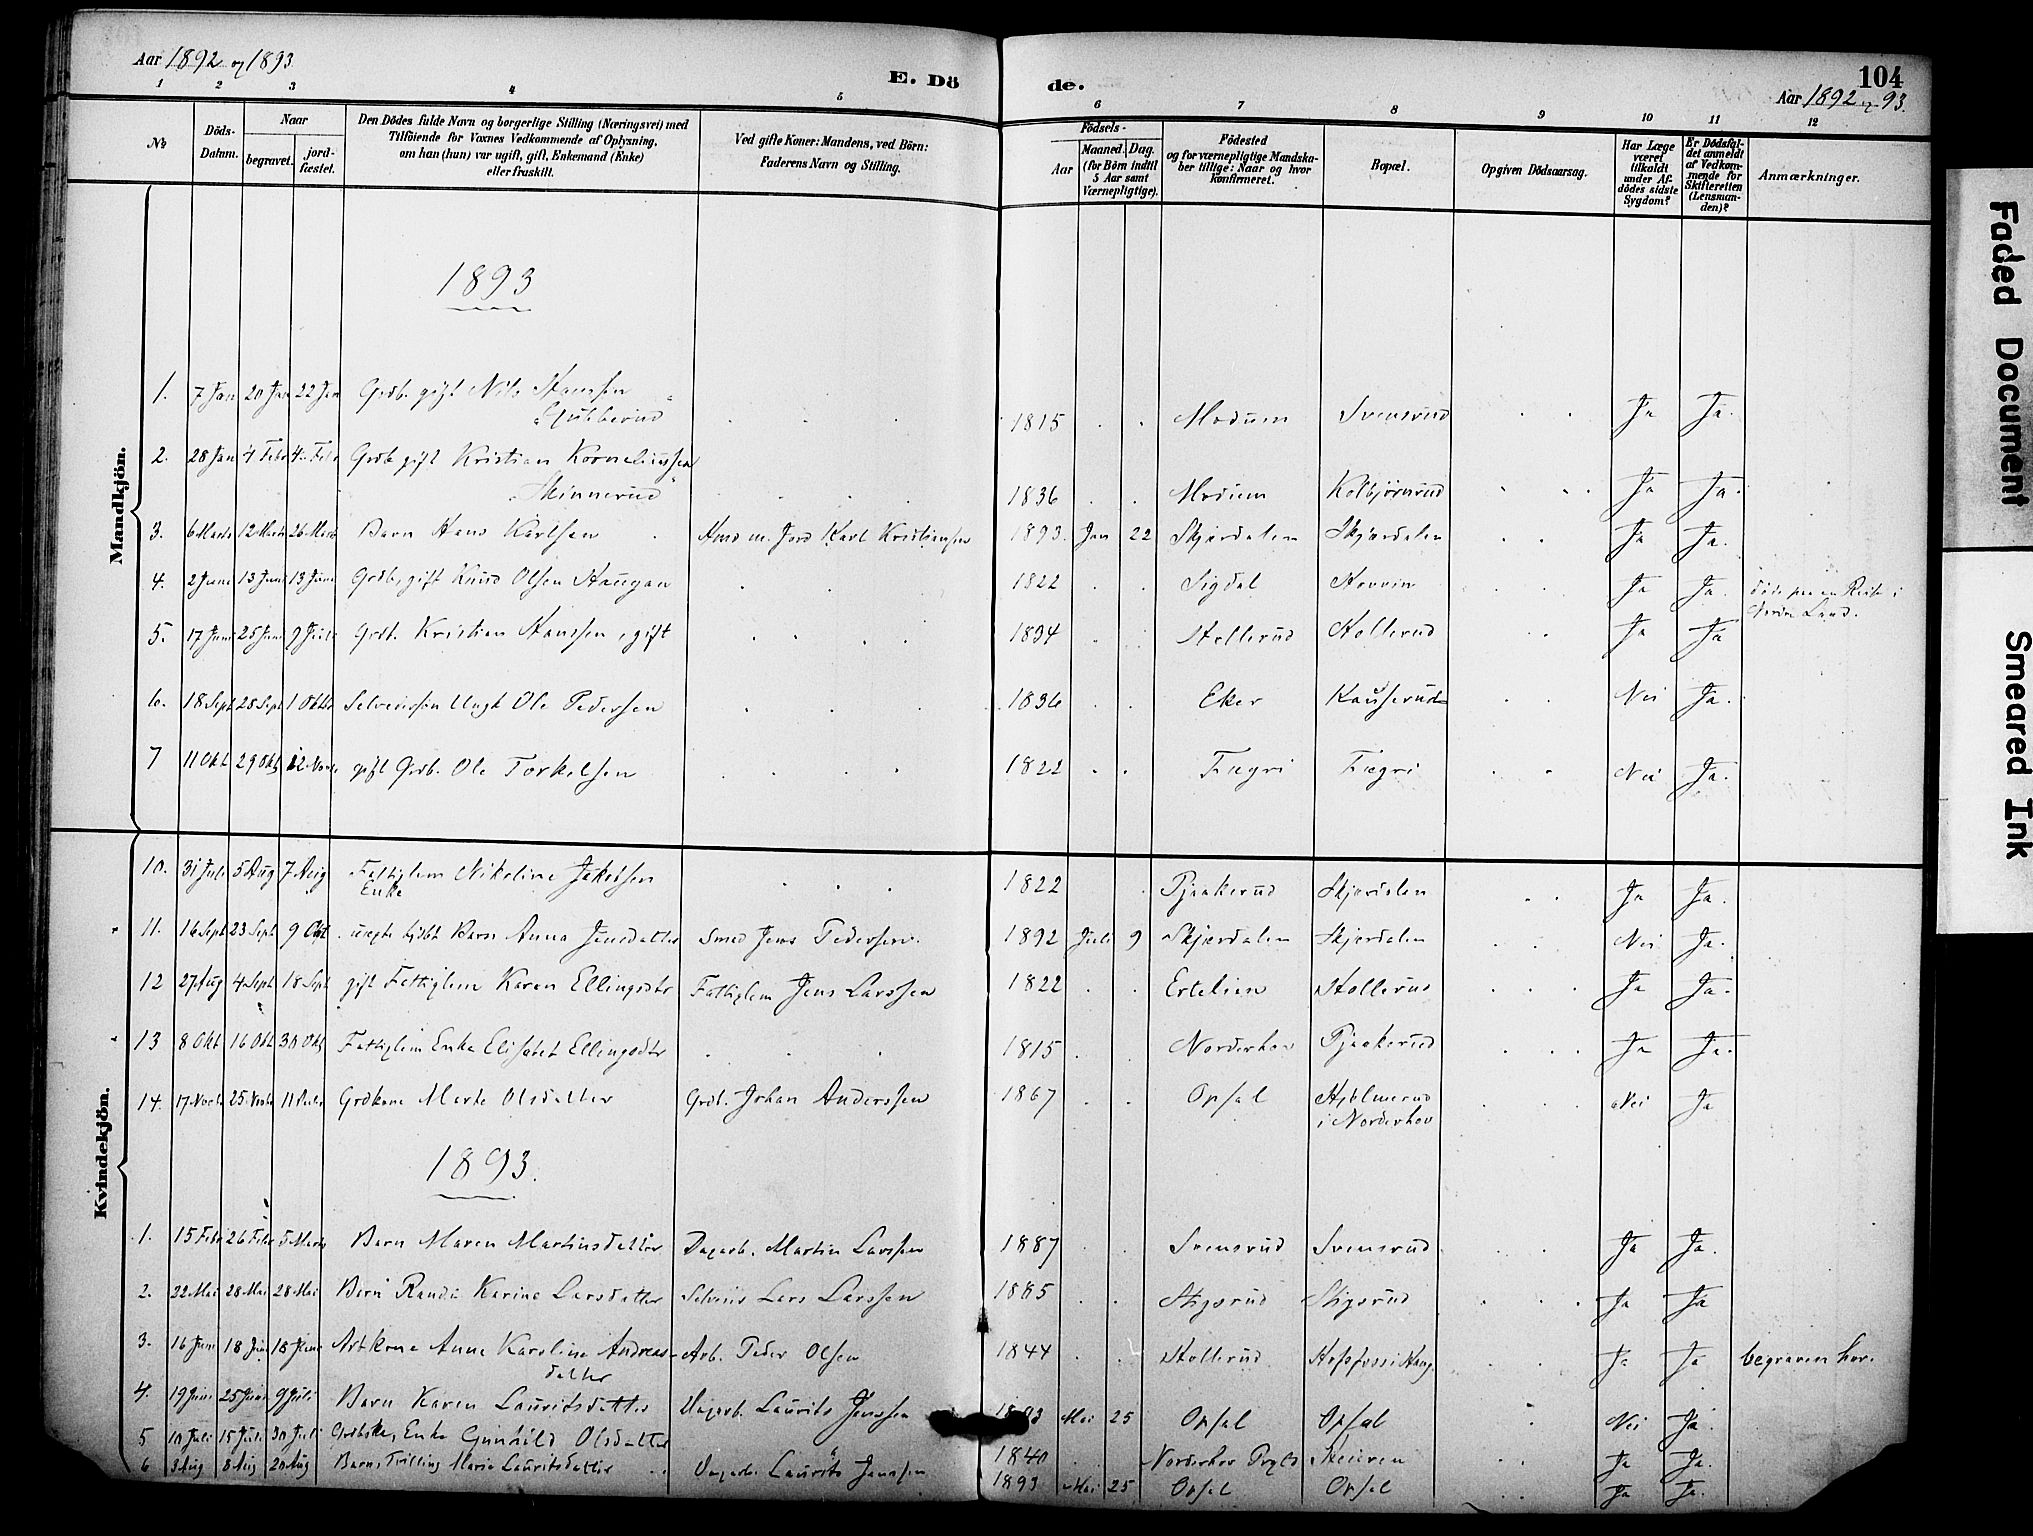 Aar 1892 og 1893
E. Dö de.
104
Aar 1892 og 93.
1 2 3 4 5 6 7 8 9 10 11 12
No
Döds-Datum.
Naar
begravet.
jord-fæstet.
Den Dödes fulde Navn og borgerlige Stilling (Næringsvei) med
Tilföiende for Voxnes Vedkommende af Oplysning,
om han (hun) var ugift, gift, Enkemand (Enke)
eller fraskilt.
Ved gifte Koner: Mandens, ved Börn:
Faderens Navn og Stilling.
Födsels-
Aar
Maaned. Dag.
(for Börn indtil
5 Aar samt
Værnepligtige).
Födested
og for værnepligtige Mandska-
ber tillige: Naar og hvor
konfirmeret.
Bopæl.
Opgiven Dödsaarsag.
Har Læge
været
tilkaldt
under Af-
dödes sidste
Sygdom?
Er Dödsfal-
det anmeldt
af Vedkom-
mende for
Skifteretten
(Lensman-
den)?
Anmærkninger.
Mandkjön.
1893
1. 7 Jan 20 Jan 22 Jan Grdb. gift Nils Hanssen 1815 Modum Svensrud Ja Ja.
2. 28 Jan 4 Febr 4 Febr Grdb gift Kristian Korneliussen
1836 Modum Kolbjørnrud Ja Ja.
3. 6 Marts 12 Marts 26 Marts Barn Hans Karlsen Hmd m. Jord Karl Kristiansen 1893. Jan 22 Skjærdalen Skjærdalen Ja Ja.
4. 2 Juni 13 Juni 13 Juni Grdb., gift Knud Olsen Haugan 1822 Sigdal Ja Ja. døde paa en Reise i
Land.
5. 17 Juni 25 Juni 9 Juli Grdb. Kristian Hanssen, gift 1834 Hollerud Hollerud Ja Ja
6. 18 Sept 28 Sept 1 Oktbr Selveiersøn Ungk Ole Pedersen 1836 Eker Nei Ja.
7 11 Okt 29 Okt 12 Novbr gift Grdb. Ole Torkelsen 1822 Fægri Fægri Nei Ja.
Kvindekjön.
10. 31 Juli 5 Aug 7 Aug Fattiglem Nikoline Jakobsen
Enke
1822 Pjaakerud Skjærdalen Ja Ja.
11. 16 Sept 23 Sept 9 Okt uægte Barn Anna Jensdatter Smed Jens Pedersen. 1892 Juli 9 Skjærdalen Skjærdalen Nei Ja.
12 27 Aug 4 Sept 18 Sept gift Fattiglem Karen Ellingsdtr Fattiglem Jens Larssen 1822 Ertelien Hollerud Ja Ja.
13 8 Okt 16 Okt 30 Okt Fattiglem Enke Elisabet Ellingsdtr 1815 Norderhov Pjaakerud Ja Ja.
14. 17 Novbr 25 Novbr 11 Decbr Grdkone Marte Olsdatter Grdb. Johan Anderssen 1867 Opsal
i Norderhov
Nei Ja
1893.
1. 15 Febr 26 Febr 5 Marts Barn Maren Martinsdatter Dagarb. Martin Larssen 1887 Svensrud Svensrud Ja Ja.
2. 22 Mai 28 Mai 28 Mai Barn Randi Karine Larsdatter Selveier Lars Larssen 1885 Stigsrud Stigsrud Ja Ja
3. 16 Juni 18 Juni 18 Juni Arbkone Anne Karoline Andreas-
datter
Arb. Peder Olsen 1844 Hollerud Ja Ja begraven her.
4. 19 Juni 25 Juni 9 Juli Barn Karen Lauritsdatter Dagarb. Laurits Jenssen 1893 Mai 25 Opsal Opsal Nei Ja.
5 10 Juli 15 Juli 30 Juli Enke Gunhild Olsdatter 1840 Norderhov Ja Ja.
6 3 Aug 8 Aug 20 Aug Barn, Tvilling Maria Lauritsdatter Dagarb. Laurits Jenssen 1893 Mai 25 Opsal Opsal Ja Ja.
Faded Document
Smeared Ink